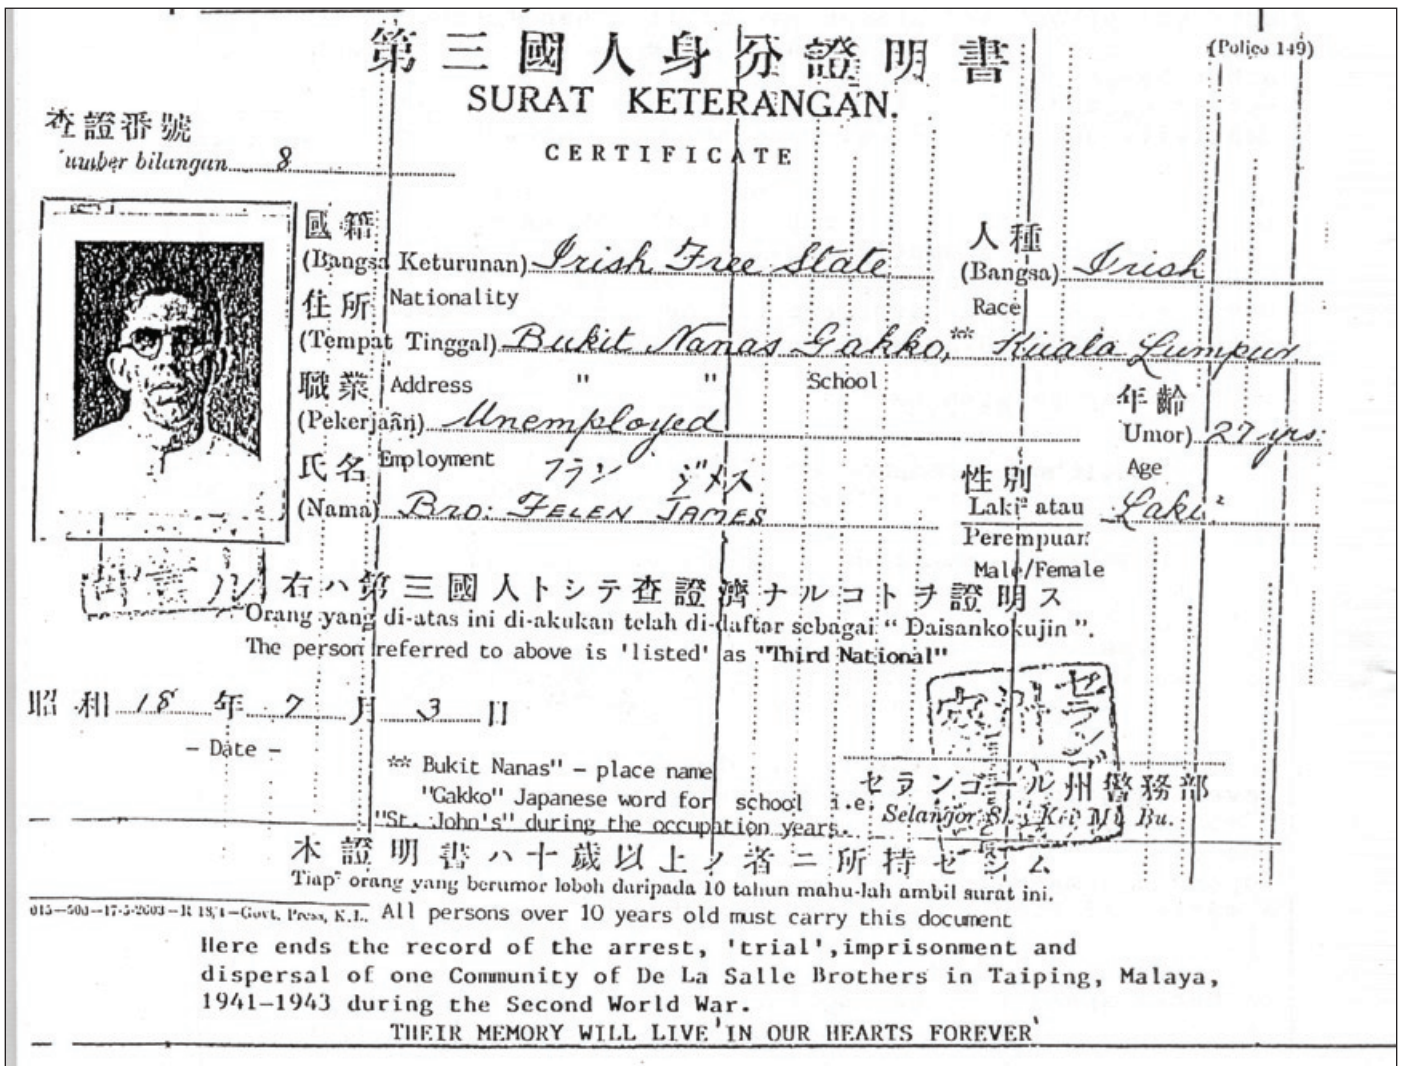 第三國人身分證明書
(Police 149)
SURAT KETERANGAN.
CERTIFICATE
查證番號
umber bilangan 8
國籍
(Bangsa Keturunan) Irish Free State
Nationality
人種
(Bangsa) Irish
Race
住所
(Tempat Tinggal) Bukit Nanas Gakko,** Kuala Lumpur
Address " " School
職業
(Pekerjaän) Unemployed
Employment
年齡
Umor) 27 yrs.
Age
氏名
フラン ジメス
(Nama) Bro: FELEN JAMES
性別
Laki² atau Laki²
Perempuan
Male/Female
右ハ第三國人トシテ查證濟ナルコトヲ證明ス
Orang yang di-atas ini di-akukan telah di-daftar sebagai “ Daisankokujin ”.
The person referred to above is 'listed' as "Third National"
昭和 18 年 7 月 3 日
- Date -
** Bukit Nanas" - place name
"Gakko" Japanese word for school i.e.
"St. John's" during the occupation years.
セランゴール州警務部
Selangor Kei Mu Bu.
本證明書ハ十歲以上ノ者ニ所持セシム
Tiap² orang yang berumor leboh daripada 10 tahun mahu-lah ambil surat ini.
Govt. Press, K.L.
All persons over 10 years old must carry this document
Here ends the record of the arrest, 'trial', imprisonment and
dispersal of one Community of De La Salle Brothers in Taiping, Malaya,
1941-1943 during the Second World War.
THEIR MEMORY WILL LIVE 'IN OUR HEARTS FOREVER'